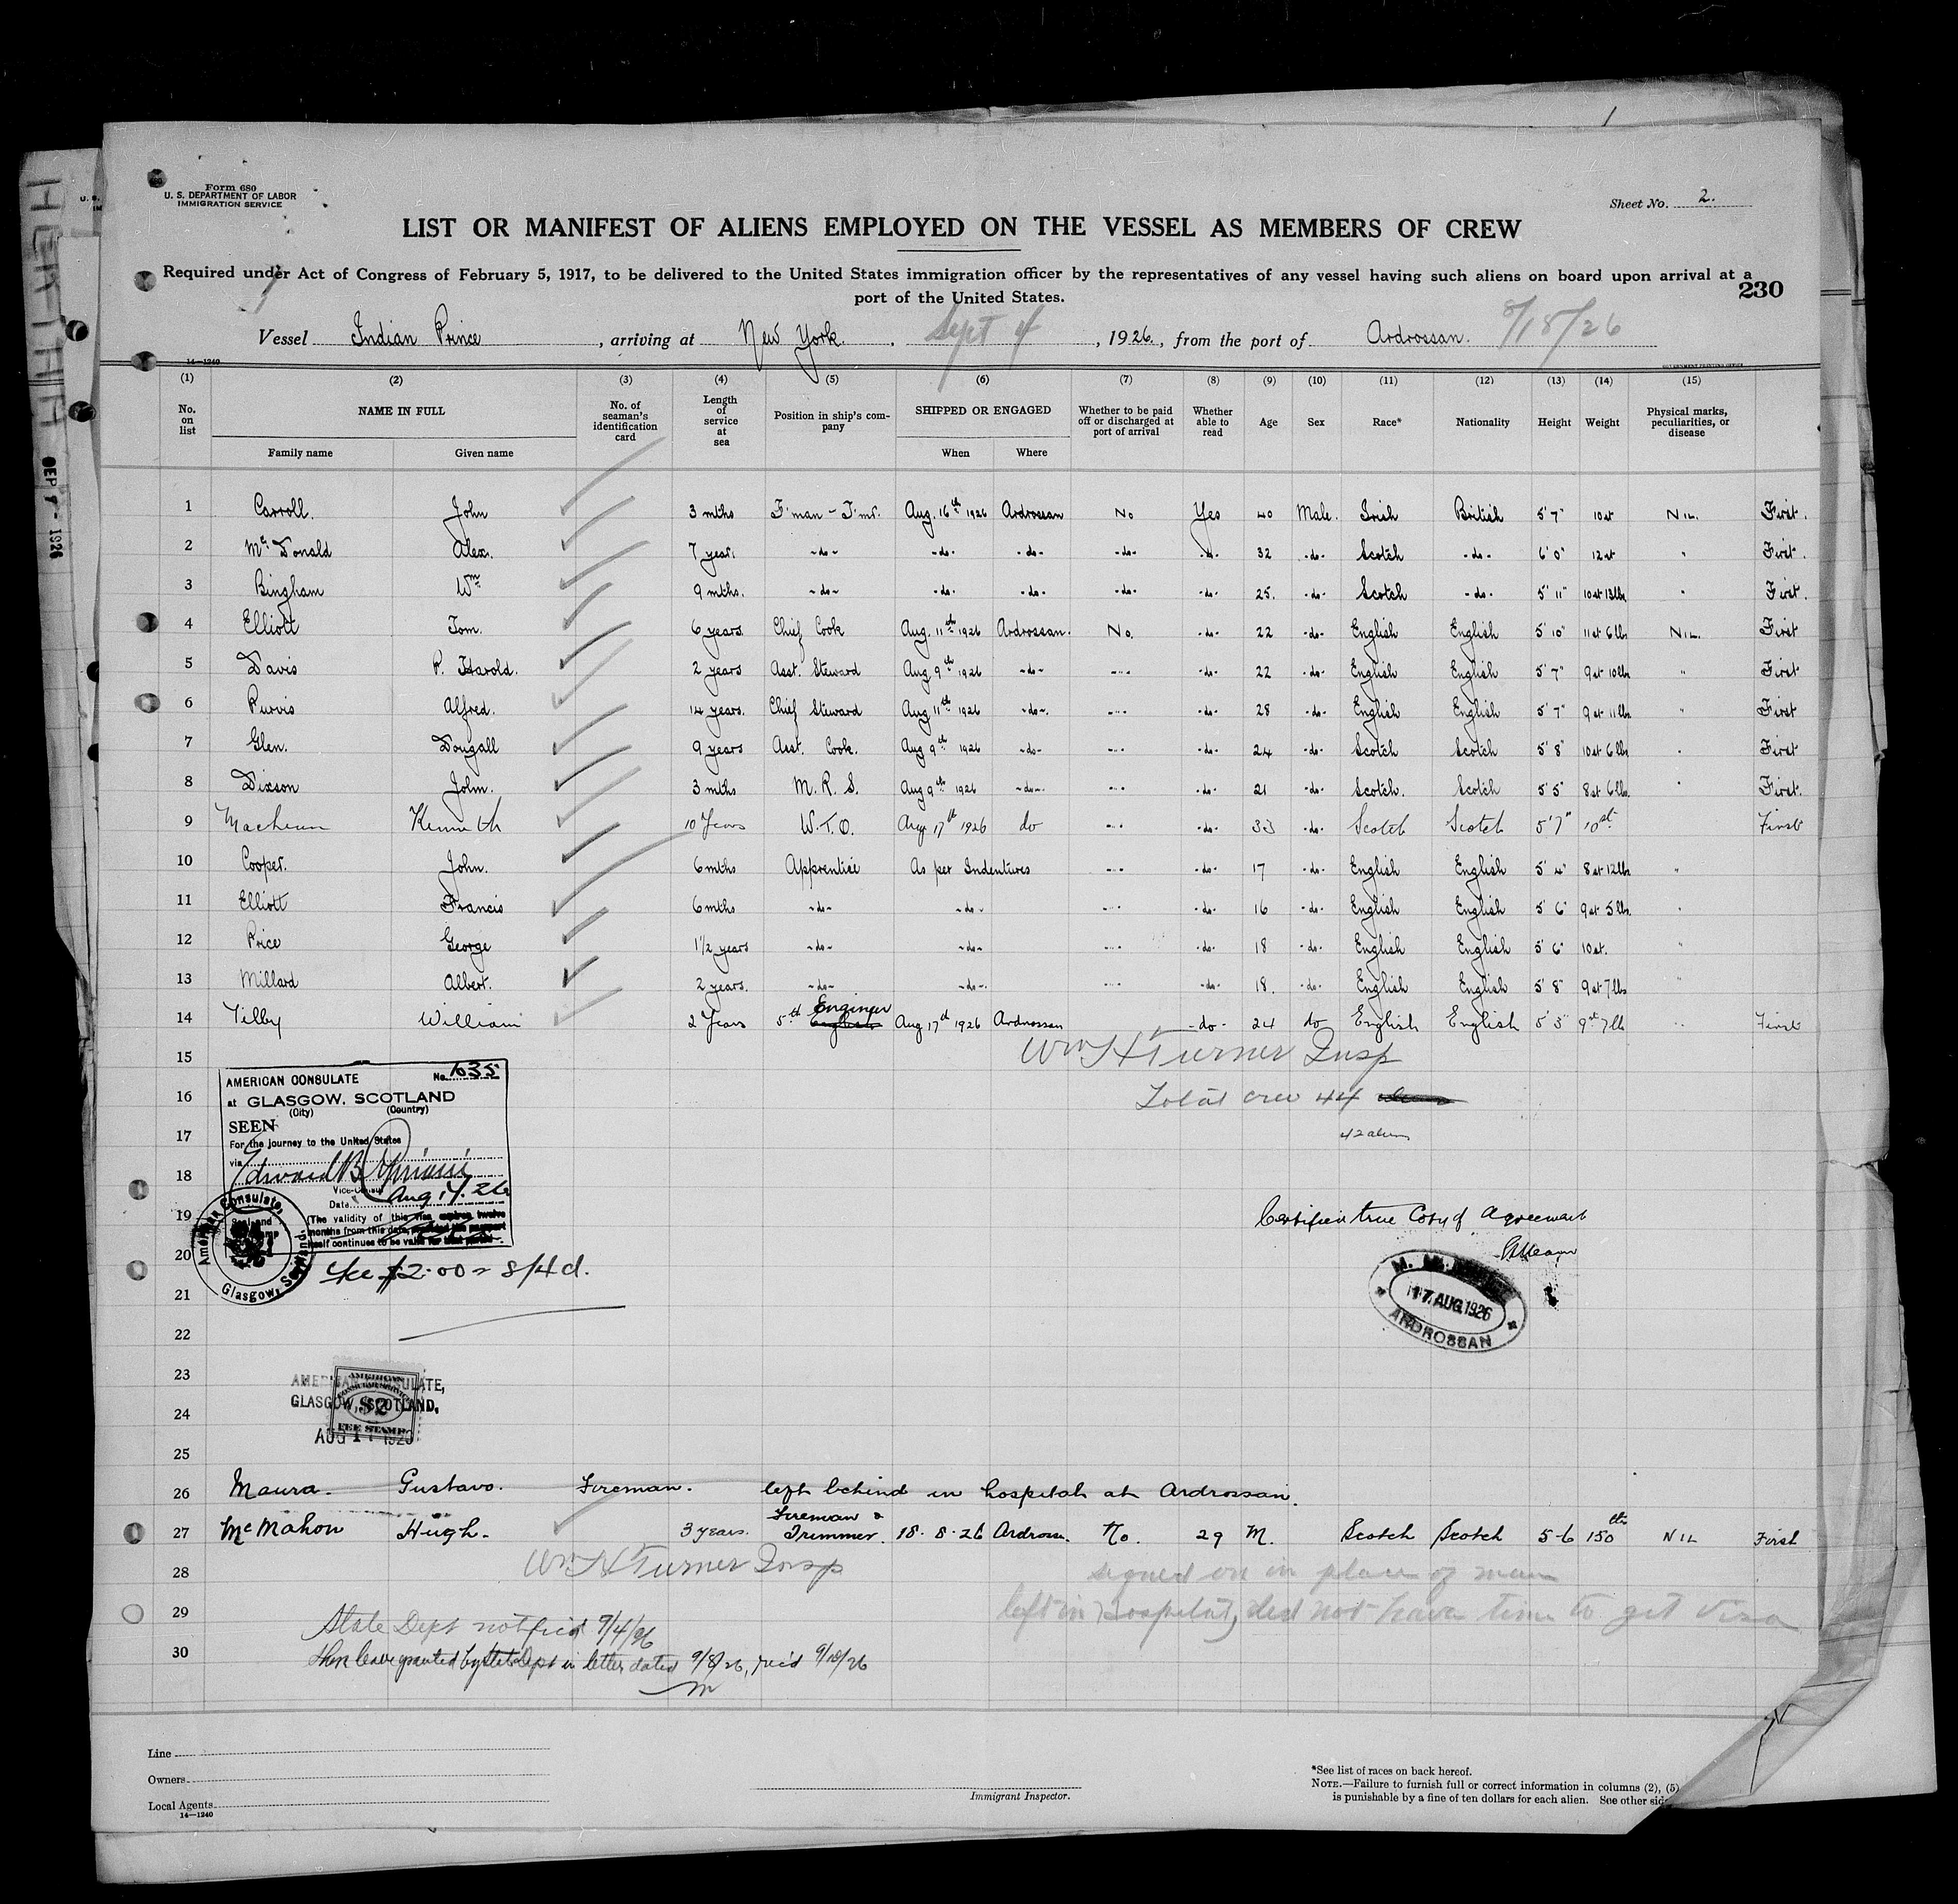 Form 680
U. S. DEPARTMENT OF LABOR
IMMIGRATION SERVICE
Sheet No. 2.
LIST OR MANIFEST OF ALIENS EMPLOYED ON THE VESSEL AS MEMBERS OF CREW
Required under Act of Congress of February 5, 1917, to be delivered to the United States immigration officer by the representatives of any vessel having such aliens on board upon arrival at a
port of the United States.
230
Vessel Indian Prince, arriving at New York. Sept 4, 1926, from the port of Ardrossan. 8/18/26
14—1240 GOVERNMENT PRINTING OFFICE
(1) (2) (3) (4) (5) (6) (7) (8) (9) (10) (11) (12) (13) (14) (15)
No. on list NAME IN FULL Family name Given name No. of seaman's identification card Length of service at sea Position in ship's company SHIPPED OR ENGAGED When Where Whether to be paid off or discharged at port of arrival Whether able to read Age Sex Race* Nationality Height Weight Physical marks, peculiarities, or disease
1 Carroll. John 3 mths F'man - T'mr. Aug. 16th 1926 Ardrossan No Yes 40 Male. Irish British 5' 7" 10st NIL. First.
2 McDonald Alex. 7 year. -do- -do- -do- -do- -do- 32 -do- Scotch -do- 6' 0" 12st " First.
3 Bingham Wm 9 mths. -do- -do- -do- -do- -do- 25. -do- Scotch -do- 5' 11" 10st 13lbs " First.
4 Elliott Tom. 6 years Chief Cook Aug. 11th 1926 Ardrossan. No. -do- 22 -do- English English 5' 10" 11st 6lbs NIL. First
5 Davis P. Harold. 2 years Asst. Steward Aug 9th 1926 -do- -"- -do- 22 -do- English English 5' 7" 9st 10lbs " First
6 Purvis Alfred. 14 years. Chief Steward Aug 11th 1926 -do-. -"- -do- 28 -do- English English 5' 7" 9st 11lbs " First
7 Glen. Dougall 9 years Asst. Cook. Aug 9th 1926 -do- -"- -do- 24 -do- Scotch Scotch 5' 8" 10st 6lbs " First
8 Dixson John. 3 mths M. R. S. Aug 9th 1926 -do- -"- -do- 21 -do- Scotch. Scotch 5' 5" 8st 6lbs " First.
9 Kenneth 10 Years W.T.O. Aug 17th 1926 do -"- -do- 33 -do- Scotch Scotch 5' 7" 10st First
10 Cooper. John. 6mths Apprentice As per Indentures -"- -do- 17 -do- English English 5' 4" 8st 12lbs "
11 Elliott Francis 6mths -do- -do- -"- -do- 16 -do- English English 5' 6" 9st 5lbs "
12 Price George 1 1/2 years -do- -do- -"- -do- 18 -do- English English 5' 6" 10st. "
13 Millard Albert. 2 years. -do- -do-. -"- -do- 18. -do- English English 5' 8" 9st 7lbs "
14 Tilby William 2 Years 5th Enginer Aug 17th 1926 Ardrossan -do- 24 do English English 5' 5" 9st 7lb " First
15 Wm H Turner Insp
16 Total crew 44
17 42 alien
18
19
20
21
22
23
24
25
AMERICAN CONSULATE No. 1635
at GLASGOW, SCOTLAND
(City) (Country)
SEEN
For the journey to the United States
via
Edward B
Vice-Consul
Date Aug 17. 26
(The validity of this visa expires twelve
months from this date,
itself continues to be valid for that period
American Consulate, Glasgow, Scotland.
Fee $2.00 = 8/4d.
Certified true Copy of Agreement
17 AUG 1926
ARDROSSAN
AMERICAN CONSULATE,
GLASGOW, SCOTLAND,
AMERICAN
$2
FEE STAMP
26 Maura. Gustavo. Fireman. left behind in hospital at Ardrossan.
27 McMahon Hugh. 3 years. Fireman & Trimmer. 18. 8. 26 Ardrossn. No. 29 M. Scotch Scotch 5-6 150 lbs NIL First
28 Wm H Turner Insp signed on in place of man
29 left in hospital, did not have time to get visa
State Dept notified 9/4/26
30 Shore leave granted by State Dept in letter dated 9/8/26, rec'd 9/10/26
m
Line
Owners
Local Agents
14—1240
Immigrant Inspector.
*See list of races on back hereof.
NOTE.—Failure to furnish full or correct information in columns (2), (5)
is punishable by a fine of ten dollars for each alien. See other side
SEP 7 - 1926